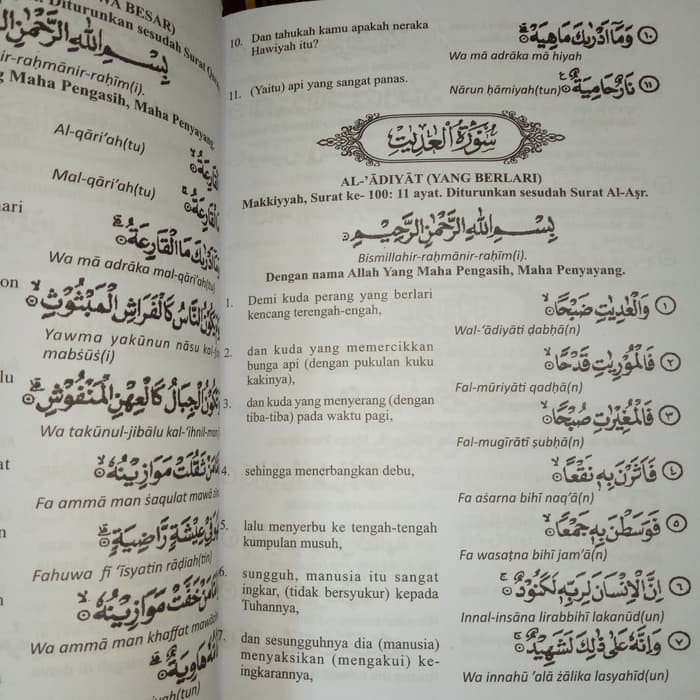 WA BESAR)
Diturunkan sesudah Surat
بِسْمِ اللّٰهِ الرَّحْمٰنِ الرَّ
ir-raḥmānir-raḥīm(i).
g Maha Pengasih, Maha Penyayang.
اَلْقَارِعَةُ
Al-qāri‘ah(tu)
مَا الْقَارِعَةُ
Mal-qāri‘ah(tu)
وَمَآ اَدْرٰىكَ مَا الْقَارِعَةُ
Wa mā adrāka mal-qāri‘ah(tu)
يَكُوْنُ النَّاسُ كَالْفَرَاشِ الْمَبْثُوْثِ
Yawma yakūnun nāsu kal-
mabṡūṡ(i)
وَتَكُوْنُ الْجِبَالُ كَالْعِهْنِ الْمَنْفُوْشِ
Wa takūnul-jibālu kal-‘ihnil-man
مَنْ ثَقُلَتْ مَوَازِيْنُهٗ
Fa ammā man ṡaqulat mawā
فَهُوَ فِيْ عِيْشَةٍ رَّاضِيَةٍ
Fahuwa fī ‘īsyatin rāḍiah(tin)
مَنْ خَفَّتْ مَوَازِيْنُهٗ
Wa ammā man khaffat mawāzīn
هَاوِيَةٌ
hāwiyah(tun)
10. Dan tahukah kamu apakah neraka
Hawiyah itu?
وَمَآ اَدْرٰىكَ مَا هِيَهْ ١٠
Wa mā adrāka mā hiyah
11. (Yaitu) api yang sangat panas.
نَارٌ حَامِيَةٌ ١١
Nārun ḥāmiyah(tun)
سُوْرَةُ الْعٰدِيٰتِ
AL-’ĀDIYĀT (YANG BERLARI)
Makkiyyah, Surat ke- 100: 11 ayat. Diturunkan sesudah Surat Al-Aṣr.
بِسْمِ اللّٰهِ الرَّحْمٰنِ الرَّحِيْمِ
Bismillahir-raḥmānir-raḥīm(i).
Dengan nama Allah Yang Maha Pengasih, Maha Penyayang.
1. Demi kuda perang yang berlari
kencang terengah-engah,
وَالْعٰدِيٰتِ ضَبْحًا ١
Wal-‘ādiyāti ḍabḥā(n)
2. dan kuda yang memercikkan
bunga api (dengan pukulan kuku
kakinya),
فَالْمُوْرِيٰتِ قَدْحًا ٢
Fal-mūriyāti qadḥā(n)
3. dan kuda yang menyerang (dengan
tiba-tiba) pada waktu pagi,
فَالْمُغِيْرٰتِ صُبْحًا ٣
Fal-mugīrāti ṣubḥā(n)
4. sehingga menerbangkan debu,
فَاَثَرْنَ بِهٖ نَقْعًا ٤
Fa aṡarna bihī naq‘ā(n)
5. lalu menyerbu ke tengah-tengah
kumpulan musuh,
فَوَسَطْنَ بِهٖ جَمْعًا ٥
Fa wasaṭna bihī jam‘ā(n)
6. sungguh, manusia itu sangat
ingkar, (tidak bersyukur) kepada
Tuhannya,
اِنَّ الْاِنْسَانَ لِرَبِّهٖ لَكَنُوْدٌ ٦
Innal-insāna lirabbihī lakanūd(un)
7. dan sesungguhnya dia (manusia)
menyaksikan (mengakui) ke-
ingkarannya,
وَاِنَّهٗ عَلٰى ذٰلِكَ لَشَهِيْدٌ ٧
Wa innahū ‘alā żālika lasyahīd(un)